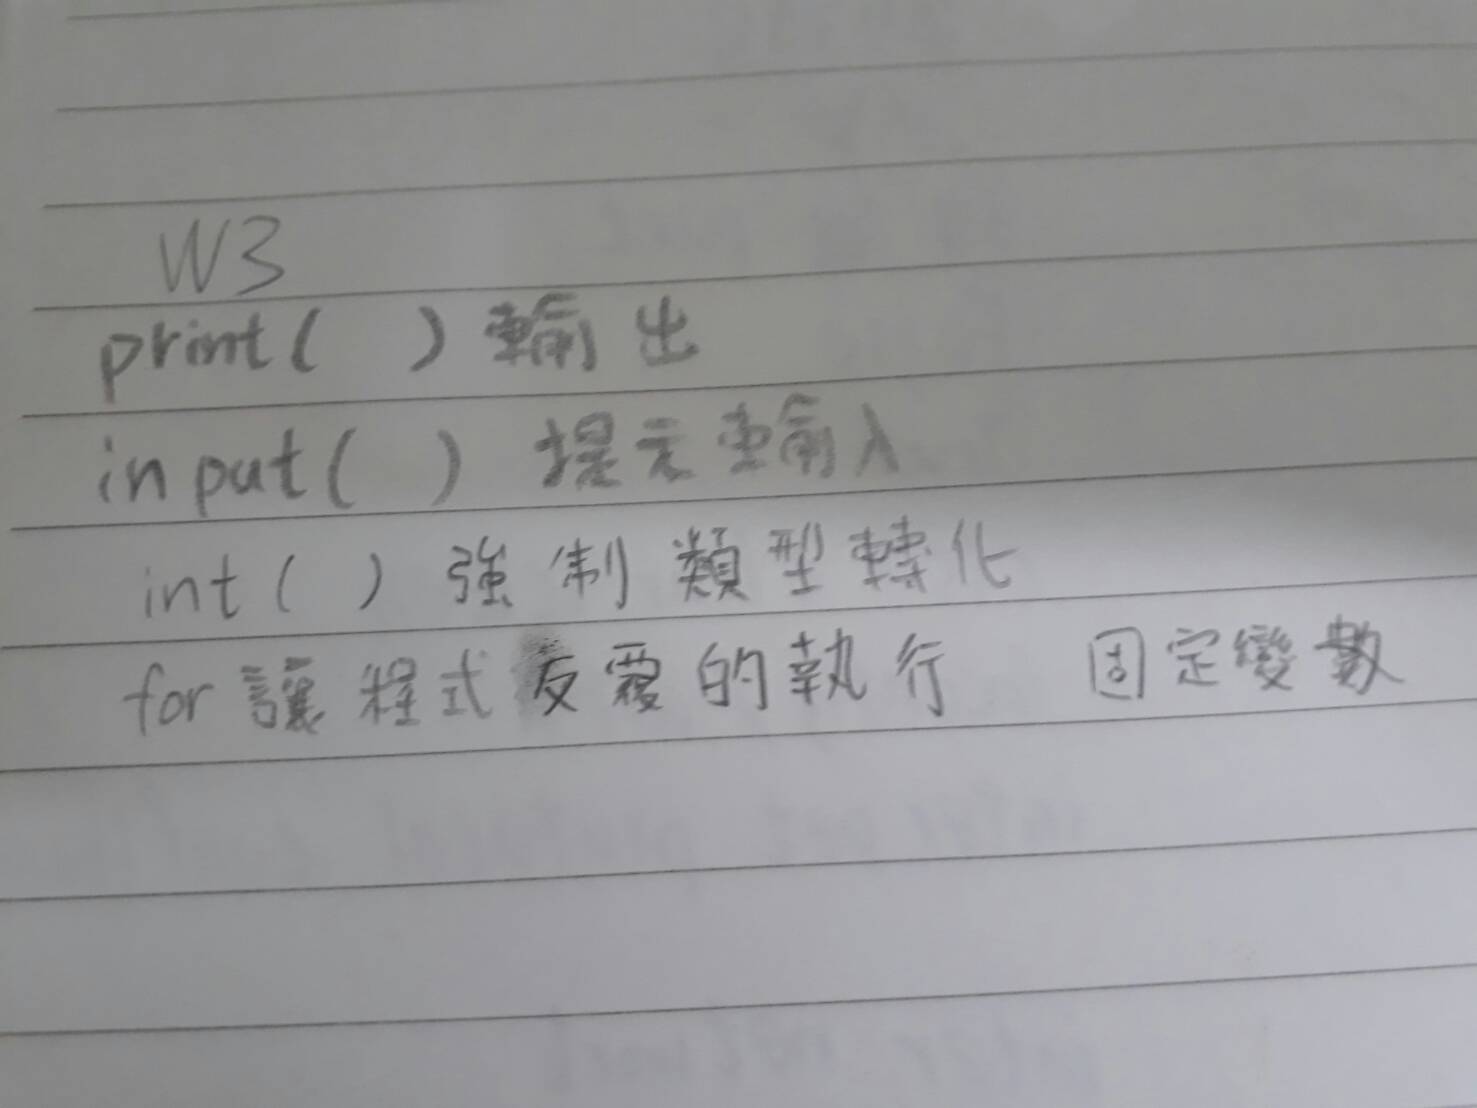 W3
print( ) 輸出
input( ) 提示輸入
int( ) 強制類型轉化
for 讓程式反覆的執行 固定變數